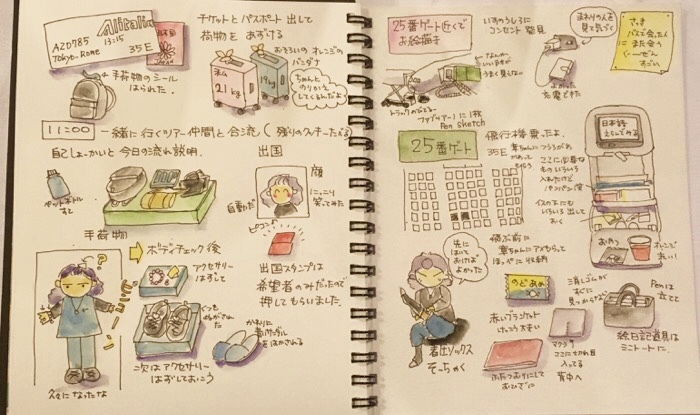 Alitalia
AZ0785
13:15
TOKYO-ROME
35E
チケットとパスポート出して
荷物をあずける
おそろいのオレンジの
バンダナ
ちゃんと
のりかえ
してくるんだよ
21kg
19kg
手荷物のシール
はられた。
11:00
一緒に行くツアー仲間と合流
自己しょーかいと今日の流れ説明。
出国
顔
にっこり
笑ってみた
自動だ
ペットボトル
すて
ピコン
出国スタンプは
希望者のみだったので
押してもらいました。
手荷物
ボディーチェック後
アクセサリー
はずして
くつも
ぬがなきゃ
かわりに
をはかされる
次はアクセサリー
はずしておこう
久々になったな
25番ゲート近くで
お絵描き
いすのうしろに
コンセント発見
まわりの人を
見て気づく
よかった
充電できた
さっき
バスで会った人
にまた会う
ぐーぜん
すごい
に1枚
Pen sketch
25番ゲート
飛行機乗ったよ。
35E
ここに必要な
ものいろいろ
入れたけど
パンパン(笑)
イスの下にも
いろいろ出して
おく
日本語
えらんでみる
おやつ
オレンジ
丸い!
先に
はいて
おけば
よかった
飛ぶ前に
葉ちゃんにアメもらって
ほっぺに収納
のどあめ
消しゴムが
すぐに
見つからない
Penは
立てて
赤いブランケット
けっこう大きい
着圧ソックス
そーちゃく
マクラ
ココに切れ目
入ってる
背中へ
ふたつおりにして
おひざに
絵日記道具は
ミニトートに。